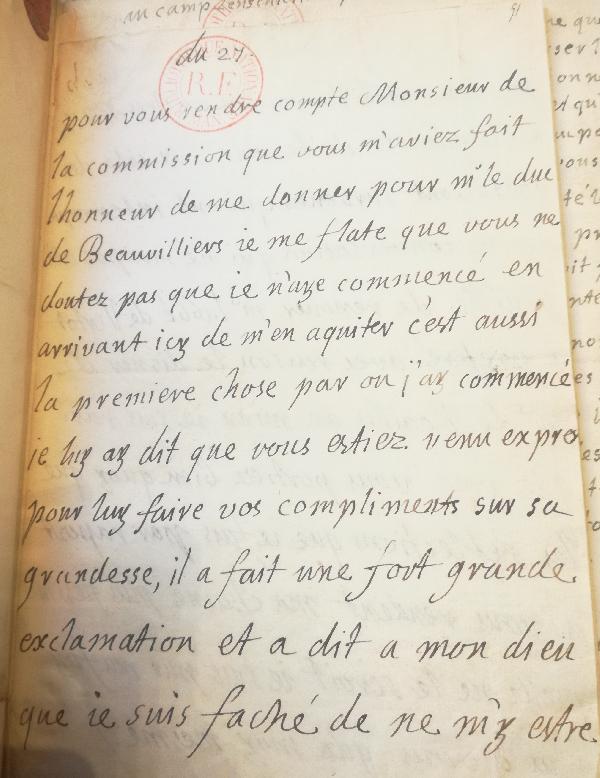 au camp
91
du 27
R.F.
pour vous rendre compte Monsieur de
la commission que vous m'aviez fait
lhonneur de me donner pour mr le duc
de Beauvilliers ie me flate que vous ne
doutez pas que ie n'aye commencé en
arrivant icy de m'en aquiter c'est aussi
la premiere chose par ou j'ay commencé
ie luy ay dit que vous estiez venu expres
pour luy faire vos compliments sur sa
grandesse, il a fait une fort grande
exclamation et a dit a mon dieu
que ie suis faché de ne m'y estre